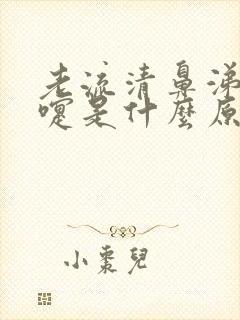 老流清鼻涕
嚏是什麼原
小棗兒